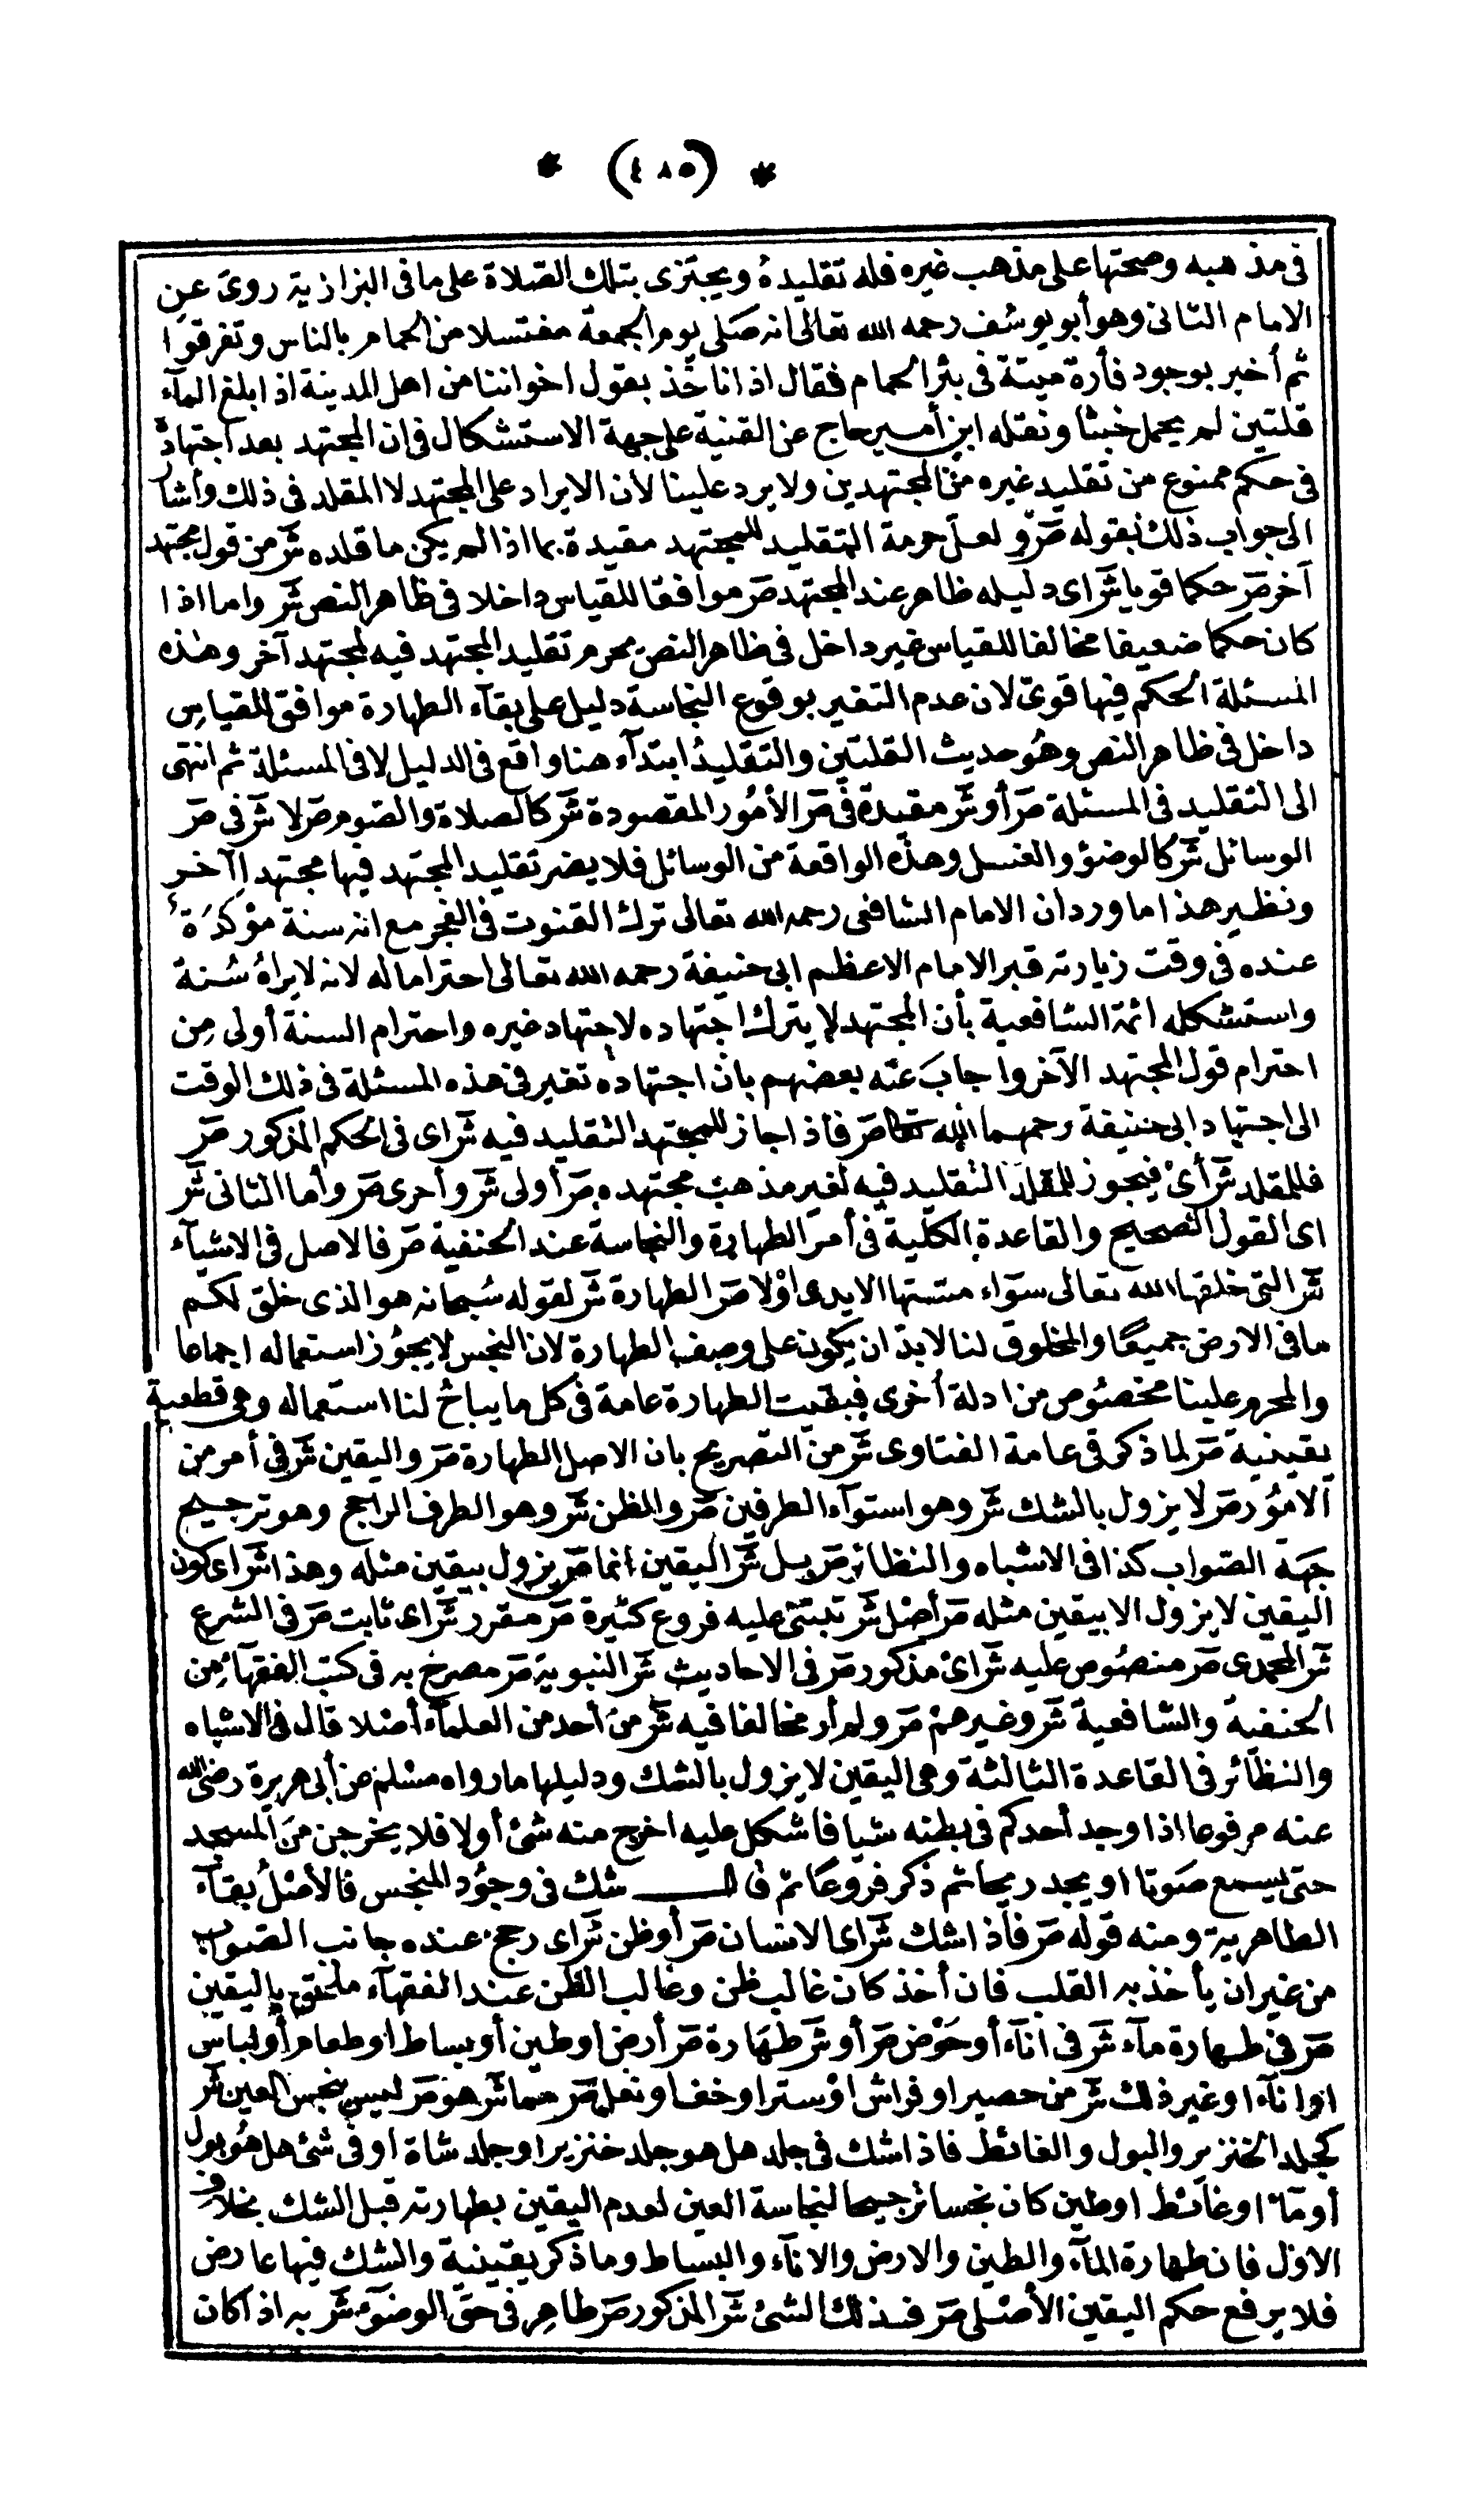 * (٤٨٥) *
فى مذهبه وصحتها على مذهب غيره فله تقليده ويجتزى بتلك الصلاة على ما فى البزازية روى عن
الامام الثانى وهو أبو يوسف رحمه الله تعالى انه صلى يوم الجمعة مغتسلا من الحمام بالناس وتفرقوا
ثم أخبر بوجود فأرة ميتة فى بئر الحمام فقال اذا نأخذ بقول اخواننا من اهل المدينة اذا بلغ الماء
قلتين لم يحمل خبثا ونقله ابن أمير حاج عن القنية على جهة الاستشكال فى ان المجتهد بعد اجتهاده
فى حكم ممنوع من تقليد غيره من المجتهدين ولا يرد علينا لأن الايراد على المجتهد لا المقلد فى ذلك وأشار
الى جواب ذلك بقوله صَ ولعل حرمة التقليد للمجتهد مقيدة بما اذا لم يكن ما قلده شَ من قول مجتهد
آخر صَ حكما قويا شَ اى دليله ظاهر عند المجتهد صَ موافقا للقياس داخلا فى ظاهر النص شَ واما اذا
كان حكما ضعيفا مخالفا للقياس غير داخل فى ظاهر النص يحرم تقليد المجتهد فيه لمجتهد آخر وهذه
المسئلة الحكم فيها قوى لان عدم التغير بوقوع النجاسة دليل على بقاء الطهارة موافق للقياس
داخل فى ظاهر النص وهو حديث القلتين والتقليد ابتداء هنا واقع فى الدليل لا فى المسئلة ثم انتهى
الى التقليد فى المسئلة صَ أو شَ مقيدة فى صَ الأمور المقصودة شَ كالصلاة والصوم صَ لا شَ فى صَ
الوسائل شَ كالوضوء والغسل وهذه الواقعة من الوسائل فلا يضر تقليد المجتهد فيها مجتهدا آخر
ونظير هذا ما ورد ان الامام الشافعى رحمه الله تعالى ترك القنوت فى الفجر مع انه سنة مؤكدة
عنده فى وقت زيارته قبر الامام الاعظم ابى حنيفة رحمه الله تعالى احتراما له لانه لا يراه سنة
واستشكله ائمة الشافعية بأن المجتهد لا يترك اجتهاده لاجتهاد غيره واحترام السنة أولى من
احترام قول المجتهد الآخر واجاب عنه بعضهم بان اجتهاده تغير فى هذه المسئلة فى ذلك الوقت
الى اجتهاد ابى حنيفة رحمهما الله تعالى صَ فاذا جاز للمجتهد التقليد فيه شَ اى فى الحكم المذكور صَ
فللمقلد شَ أى فيجوز للمقلد التقليد فيه لغير مذهب مجتهده صَ أولى شَ وأحرى صَ وأما الثانى شَ
اى القول الصحيح والقاعدة الكلية فى أمر الطهارة والنجاسة عند الحنفية صَ فالاصل فى الاشياء
شَ التى خلقها الله تعالى سواء مستها الايدى اولا صَ الطهارة شَ لقوله سبحانه هو الذى خلق لكم
ما فى الارض جميعا والمخلوق لنا لا بد ان يكون على وصف الطهارة لان النجس لا يجوز استعماله اجماعا
والمحرم علينا مخصوص من ادلة أخرى فبقيت الطهارة عامة فى كل ما يباح لنا استعماله وهى قطعية
يقينية صَ لما ذكر فى عامة الفتاوى شَ من التصريح بان الاصل الطهارة صَ واليقين شَ فى أمر من
الامور صَ لا يزول بالشك شَ وهو استواء الطرفين صَ والظن شَ وهو الطرف الراجح وهو ترجيح
جهة الصواب كذا فى الاشباه والنظائر صَ بل شَ اليقين انما صَ يزول بيقين مثله وهذا شَ اى كون
اليقين لا يزول الا بيقين مثله صَ أصل شَ تبتنى عليه فروع كثيرة صَ مقرر شَ اى ثابت صَ فى الشرع
شَ المحمدى صَ منصوص عليه شَ اى مذكور صَ فى الاحاديث شَ النبوية صَ مصرح به فى كتب الفقهاء من
الحنفية والشافعية شَ وغيرهم صَ ولم أر مخالفا فيه شَ من أحد من العلماء أصلا قال فى الاشباه
والنظائر فى القاعدة الثالثة وهى اليقين لا يزول بالشك ودليلها ما رواه مسلم عن أبى هريرة رضى الله
عنه مرفوعا اذا وجد أحدكم فى بطنه شيا فاشكل عليه اخرج منه شئ أولا فلا يخرجن من المسجد
حتى يسمع صوتا او يجد ريحا ثم ذكر فروعا ثم قال شك فى وجود النجس فالأصل بقاء
الطاهرية ومنه قوله صَ فاذا شك شَ اى الانسان صَ أو ظن شَ اى رجح عنده جانب الصواب
من غير ان يأخذ به القلب فان أخذ كان غالب ظن وغالب الظن عند الفقهاء ملحق باليقين
صَ فى طهارة ماء شَ فى اناء أو حوض صَ أو شَ طهارة صَ أرض او طين أو بساط او طعام أو لباس
او اناء او غير ذلك شَ من حصير او فراش او ستر او خف او نعل صَ مما شَ هو صَ ليس بنجس العين شَ
كجلد الخنزير والبول والغائط فاذا شك فى جلد هل هو جلد خنزير او جلد شاة او فى شئ هل هو بول
أو ماء او غائط او طين كان نجسا ترجيحا لنجاسة العين لعدم اليقين بطهارته قبل الشك بخلاف
الاول فان طهارة الماء والطين والارض والاناء والبساط وما ذكر يقينية والشك فيها عارض
فلا يرفع حكم اليقين الأصلى صَ فذلك الشئ شَ المذكور صَ طاهر فى حق الوضوء شَ به اذا كان